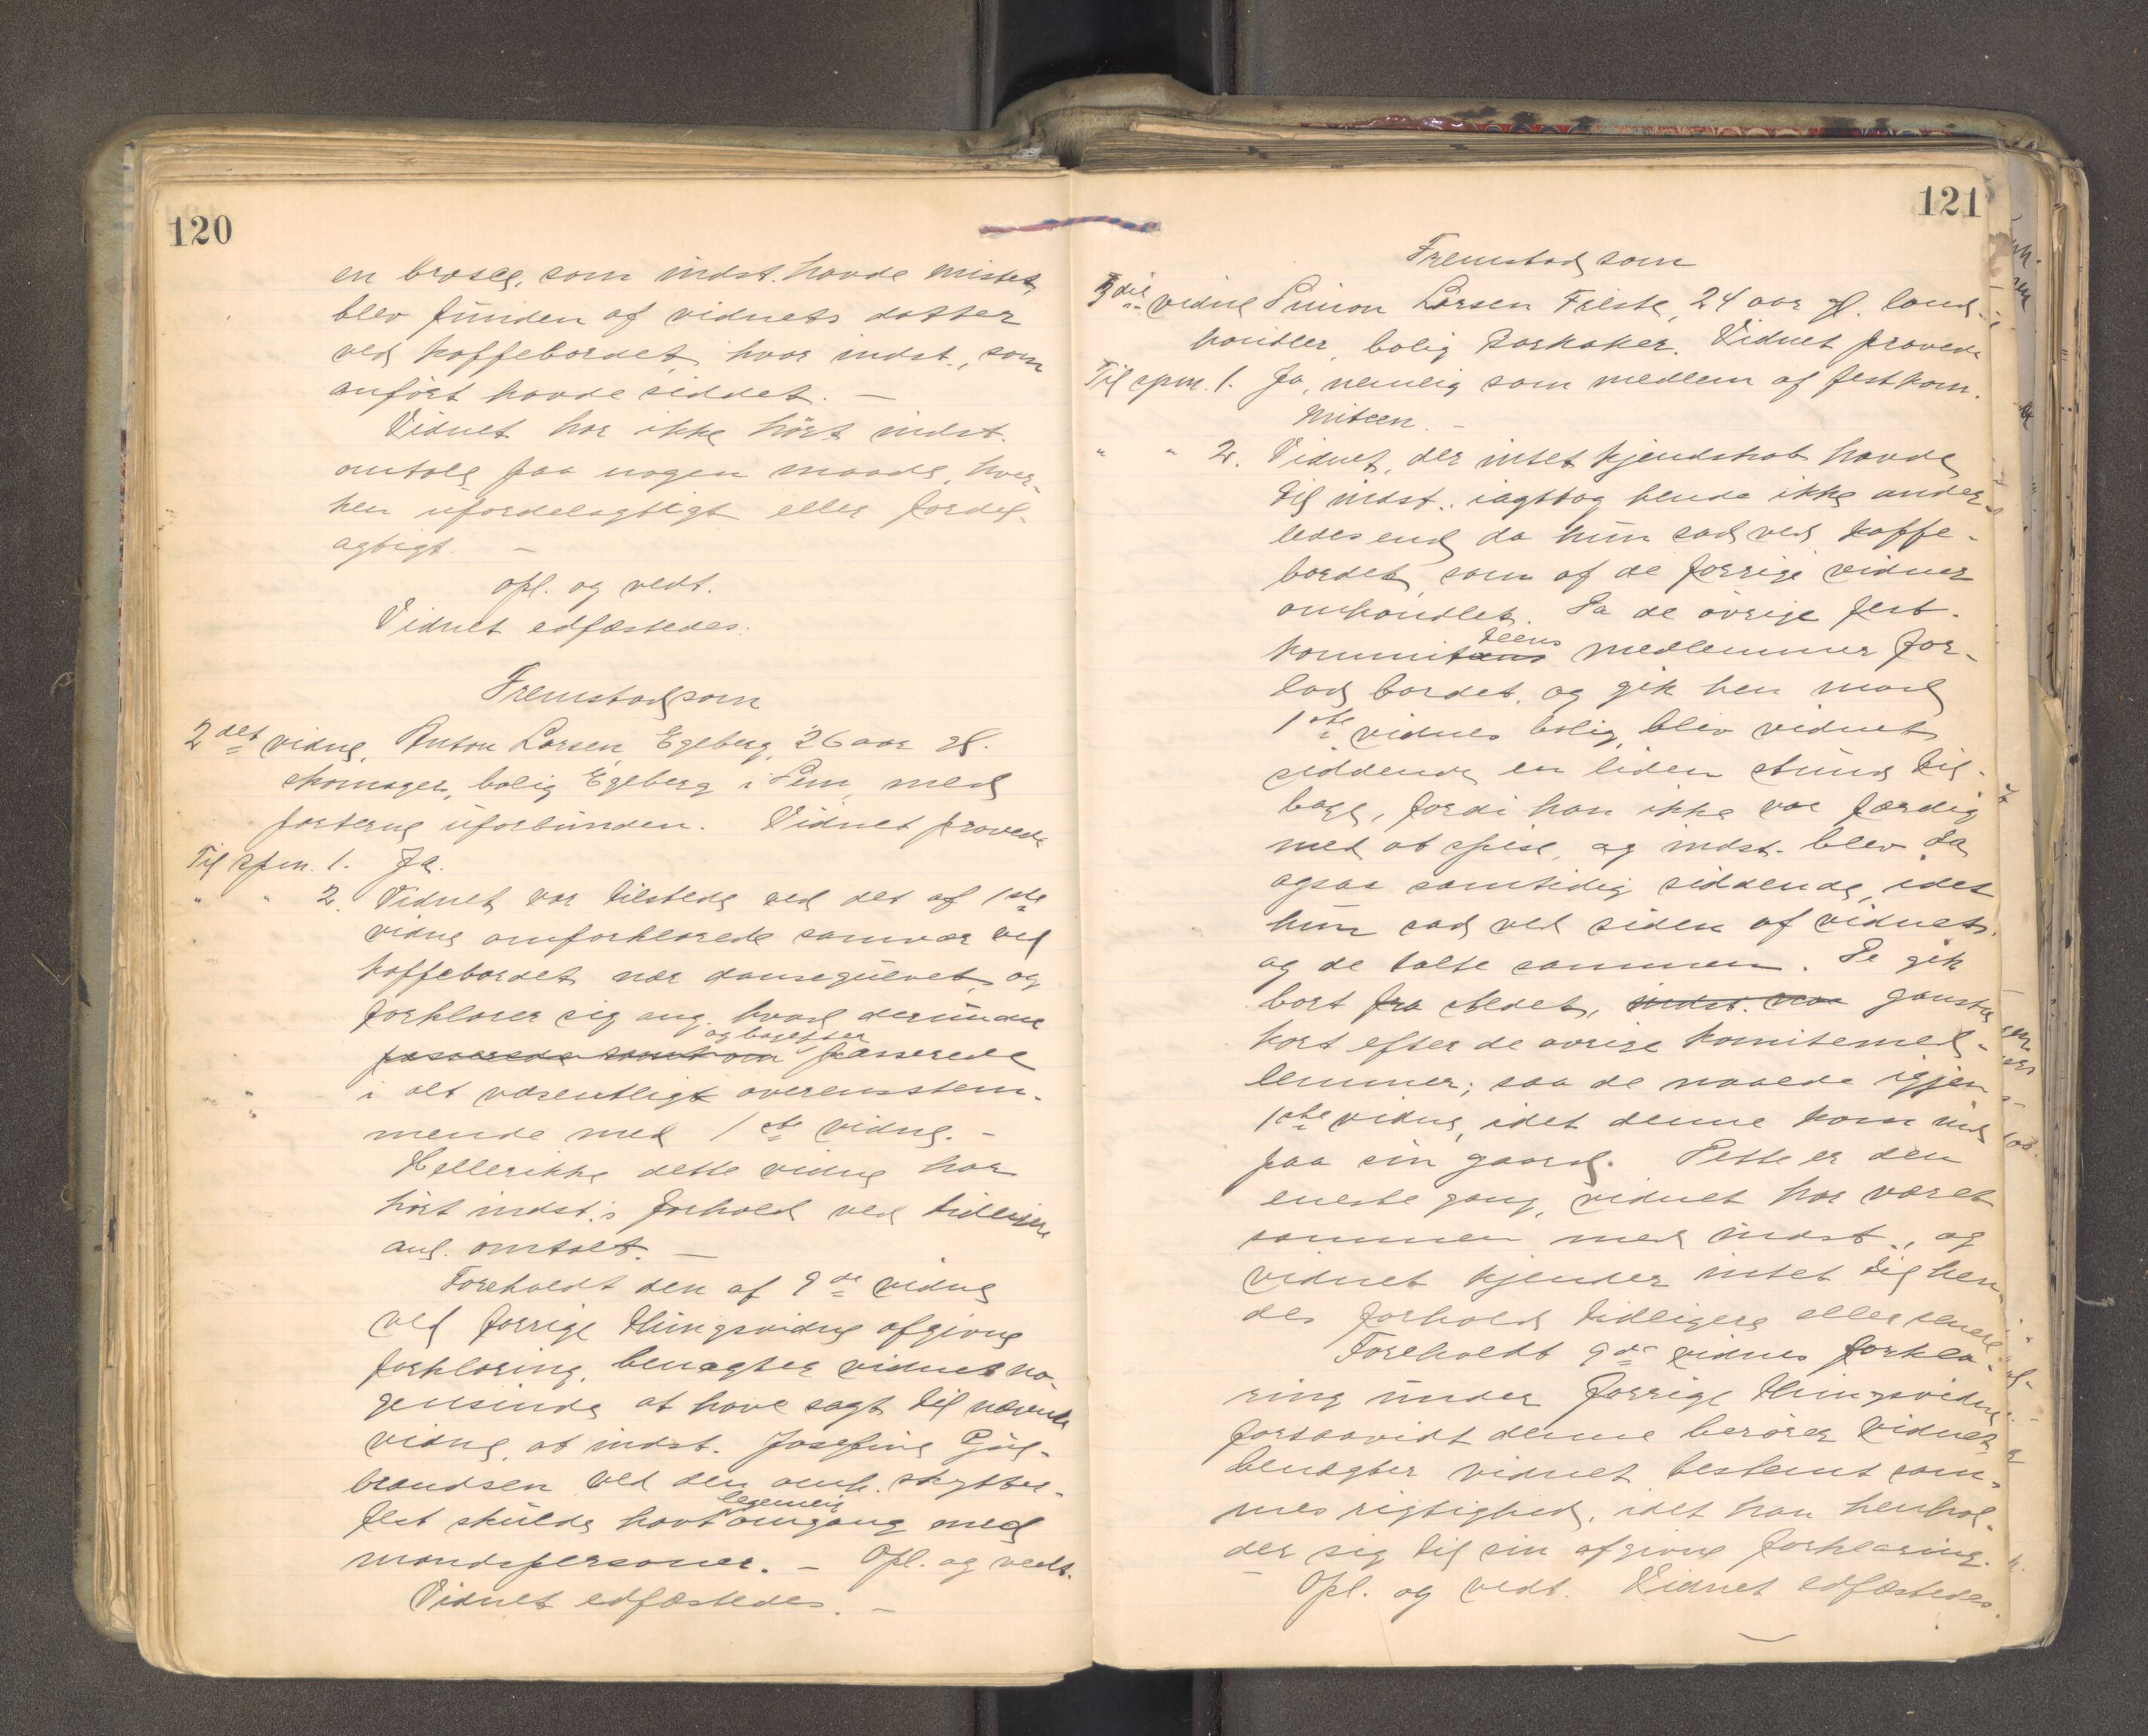 120
en brosch, som indst. havde mistet,
blev funden af vidnets datter
ved kaffebordet, hvor indst., som
anført havde siddet. —
Vidnet har ikke hørt indst.
omtale paa nogen maade, hver-
ken ufordelagtigt eller fordel-
agtigt. —
Opl. og vedt.
Vidnet edfæstedes.
Fremstod som
2det vidne, Anton Larsen Egeberg, 26 aar gl.
skomager, bolig Egeberg i Sem, med
parterne uforbunden. Vidnet provede
Til spm. 1. Ja.
" " 2. Vidnet var tilstede ved det af 1ste
vidne omforklarede samvær ved
kaffebordet nær dansegulvet, og
forklarer sig ang. hvad derunder
passerede samt om og bagefter passerede
i alt væsentligt overensstem-
mende med 1ste vidne. —
Heller ikke dette vidne har
hørt indst.s forhold ved tidligere
anl. omtalt. —
Foreholdt den af 9de vidne
ved forrige thingsvidne afgivne
forklaring, benægter vidnet no-
gensinde at have sagt til nævnte
vidne, at indst. Josefine Gul-
brandsen ved den omh. skytter-
fest skulde havt legemlig omgang med
mandspersoner. — Opl. og vedt.
Vidnet edfæstedes. —
121
Fremstod som
3die vidne Simon Larsen 24 aar gl. land-
handler, bolig Barkaker. Vidnet provede
Til spm. 1. Ja, nemlig som medlem af festkom-
miteen. —
" " 2. Vidnet, der intet kjendskab havde
til indst., iagttog hende ikke ander-
ledes end da hun sad ved kaffe-
bordet, som af de forrige vidner
omhandlet. Da de øvrige fest-
kommiteens medlemmer for-
lod bordet, og gik hen mod
1ste vidnes bolig, blev vidnet
siddende en liden stund til-
bage, fordi han ikke var færdig
med at spise, og indst. blev da
ogsaa samtidig siddende, idet
hun sad ved siden af vidnet,
og de talte sammen. De gik
bort fra stedet, indst. var ganske
kort efter de øvrige komitemed-
lemmer; saa de naaede igjen
1ste vidne, idet denne kom ind
paa sin gaard. Dette er den
eneste gang, vidnet har været
sammen med indst., og
vidnet kjender intet til hen-
des forhold tidligere eller senere.
Foreholdt 9de vidnes forkla-
ring under forrige thingsvidne
forsaavidt denne berører vidnet,
benægter vidnet bestemt sam-
mes rigtighed, idet han henhol-
der sig til sin afgivne forklaring.
Opl. og vedt. Vidnet edfæstedes.